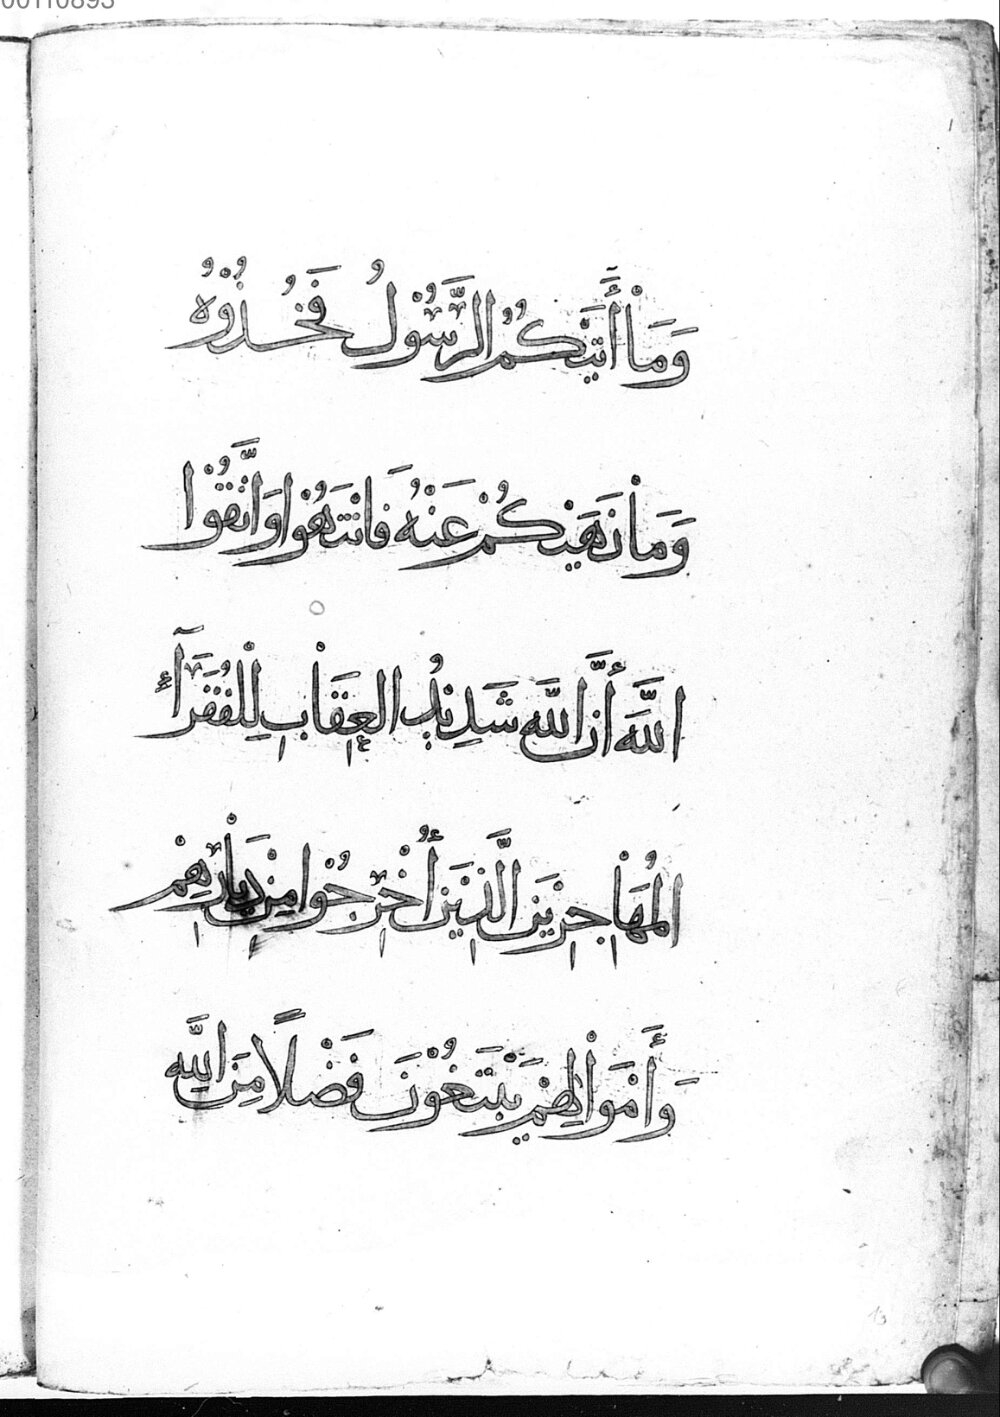 00110893
وَمَاْ أَتَىٰكُمُ الرَّسُوْلُ فَخُذُوْهُ
وَمَاْ نَهَىٰكُمْ عَنْهُ فَانْتَهُوْا وَاتَّقُوْا
اللَّهَ أَنَّ اللَّهَ شَدِيْدُ الْعِقَاْبِ لِلْفُقَرَآءِ
الْمُهَاْجِرِيْنَ الَّذِيْنَ أُخْرِجُوْا مِنْ دِيَاْرِهِمْ
وَأَمْوَاْلِهِمْ يَبْتَغُوْنَ فَضْلًا مِنَ اللَّهِ